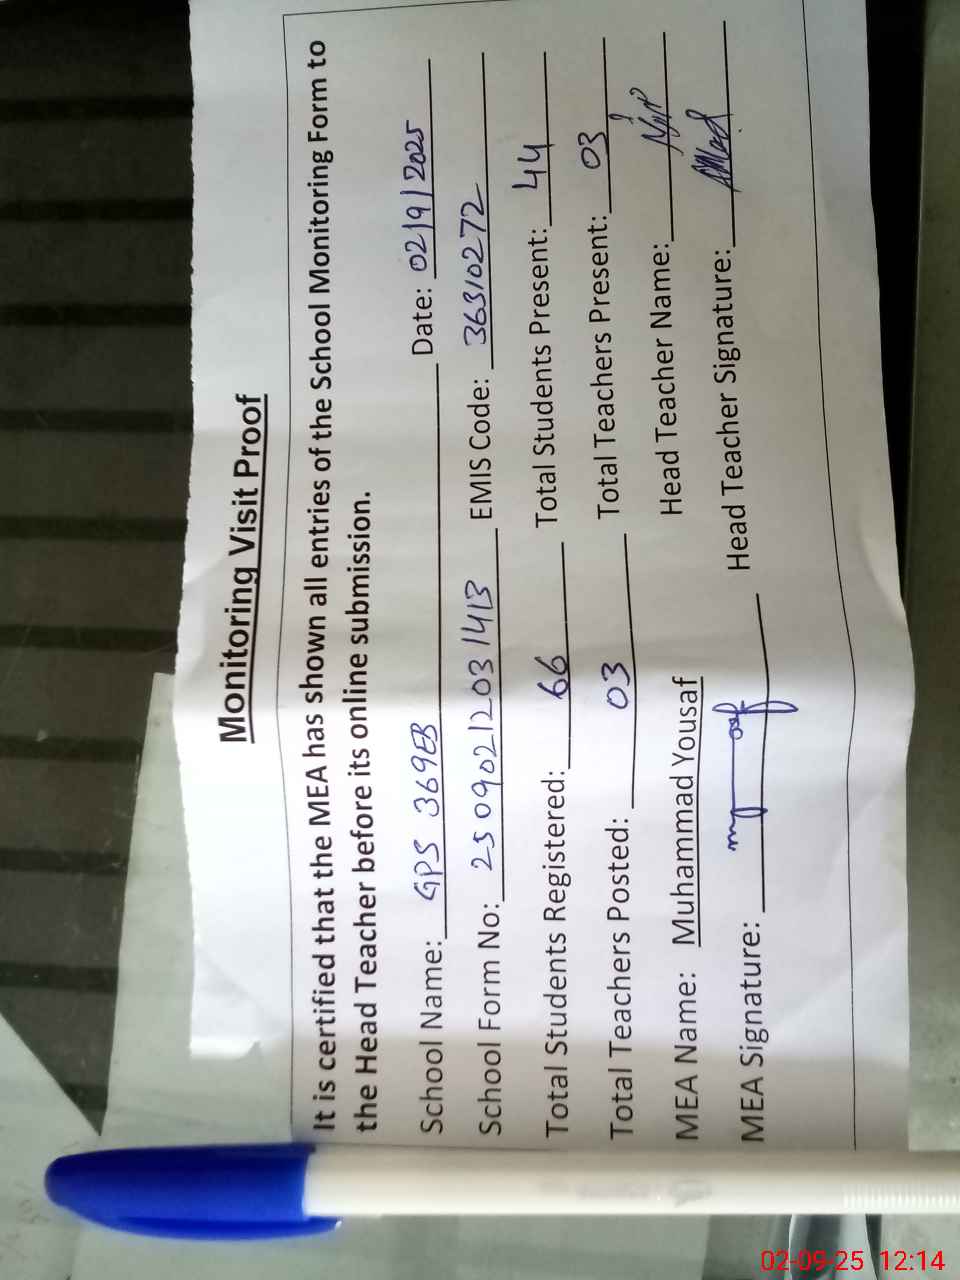 Monitoring Visit Proof
It is certified that the MEA has shown all entries of the School Monitoring Form to
the Head Teacher before its online submission.
School Name: GPS 369EB Date: 02/9/2025
School Form No: 25090212031413 EMIS Code: 36310272
Total Students Registered: 66 Total Students Present: 44
Total Teachers Posted: 03 Total Teachers Present: 03
MEA Name: Muhammad Yousaf Head Teacher Name:
MEA Signature: Head Teacher Signature:
02-09-25 12:14